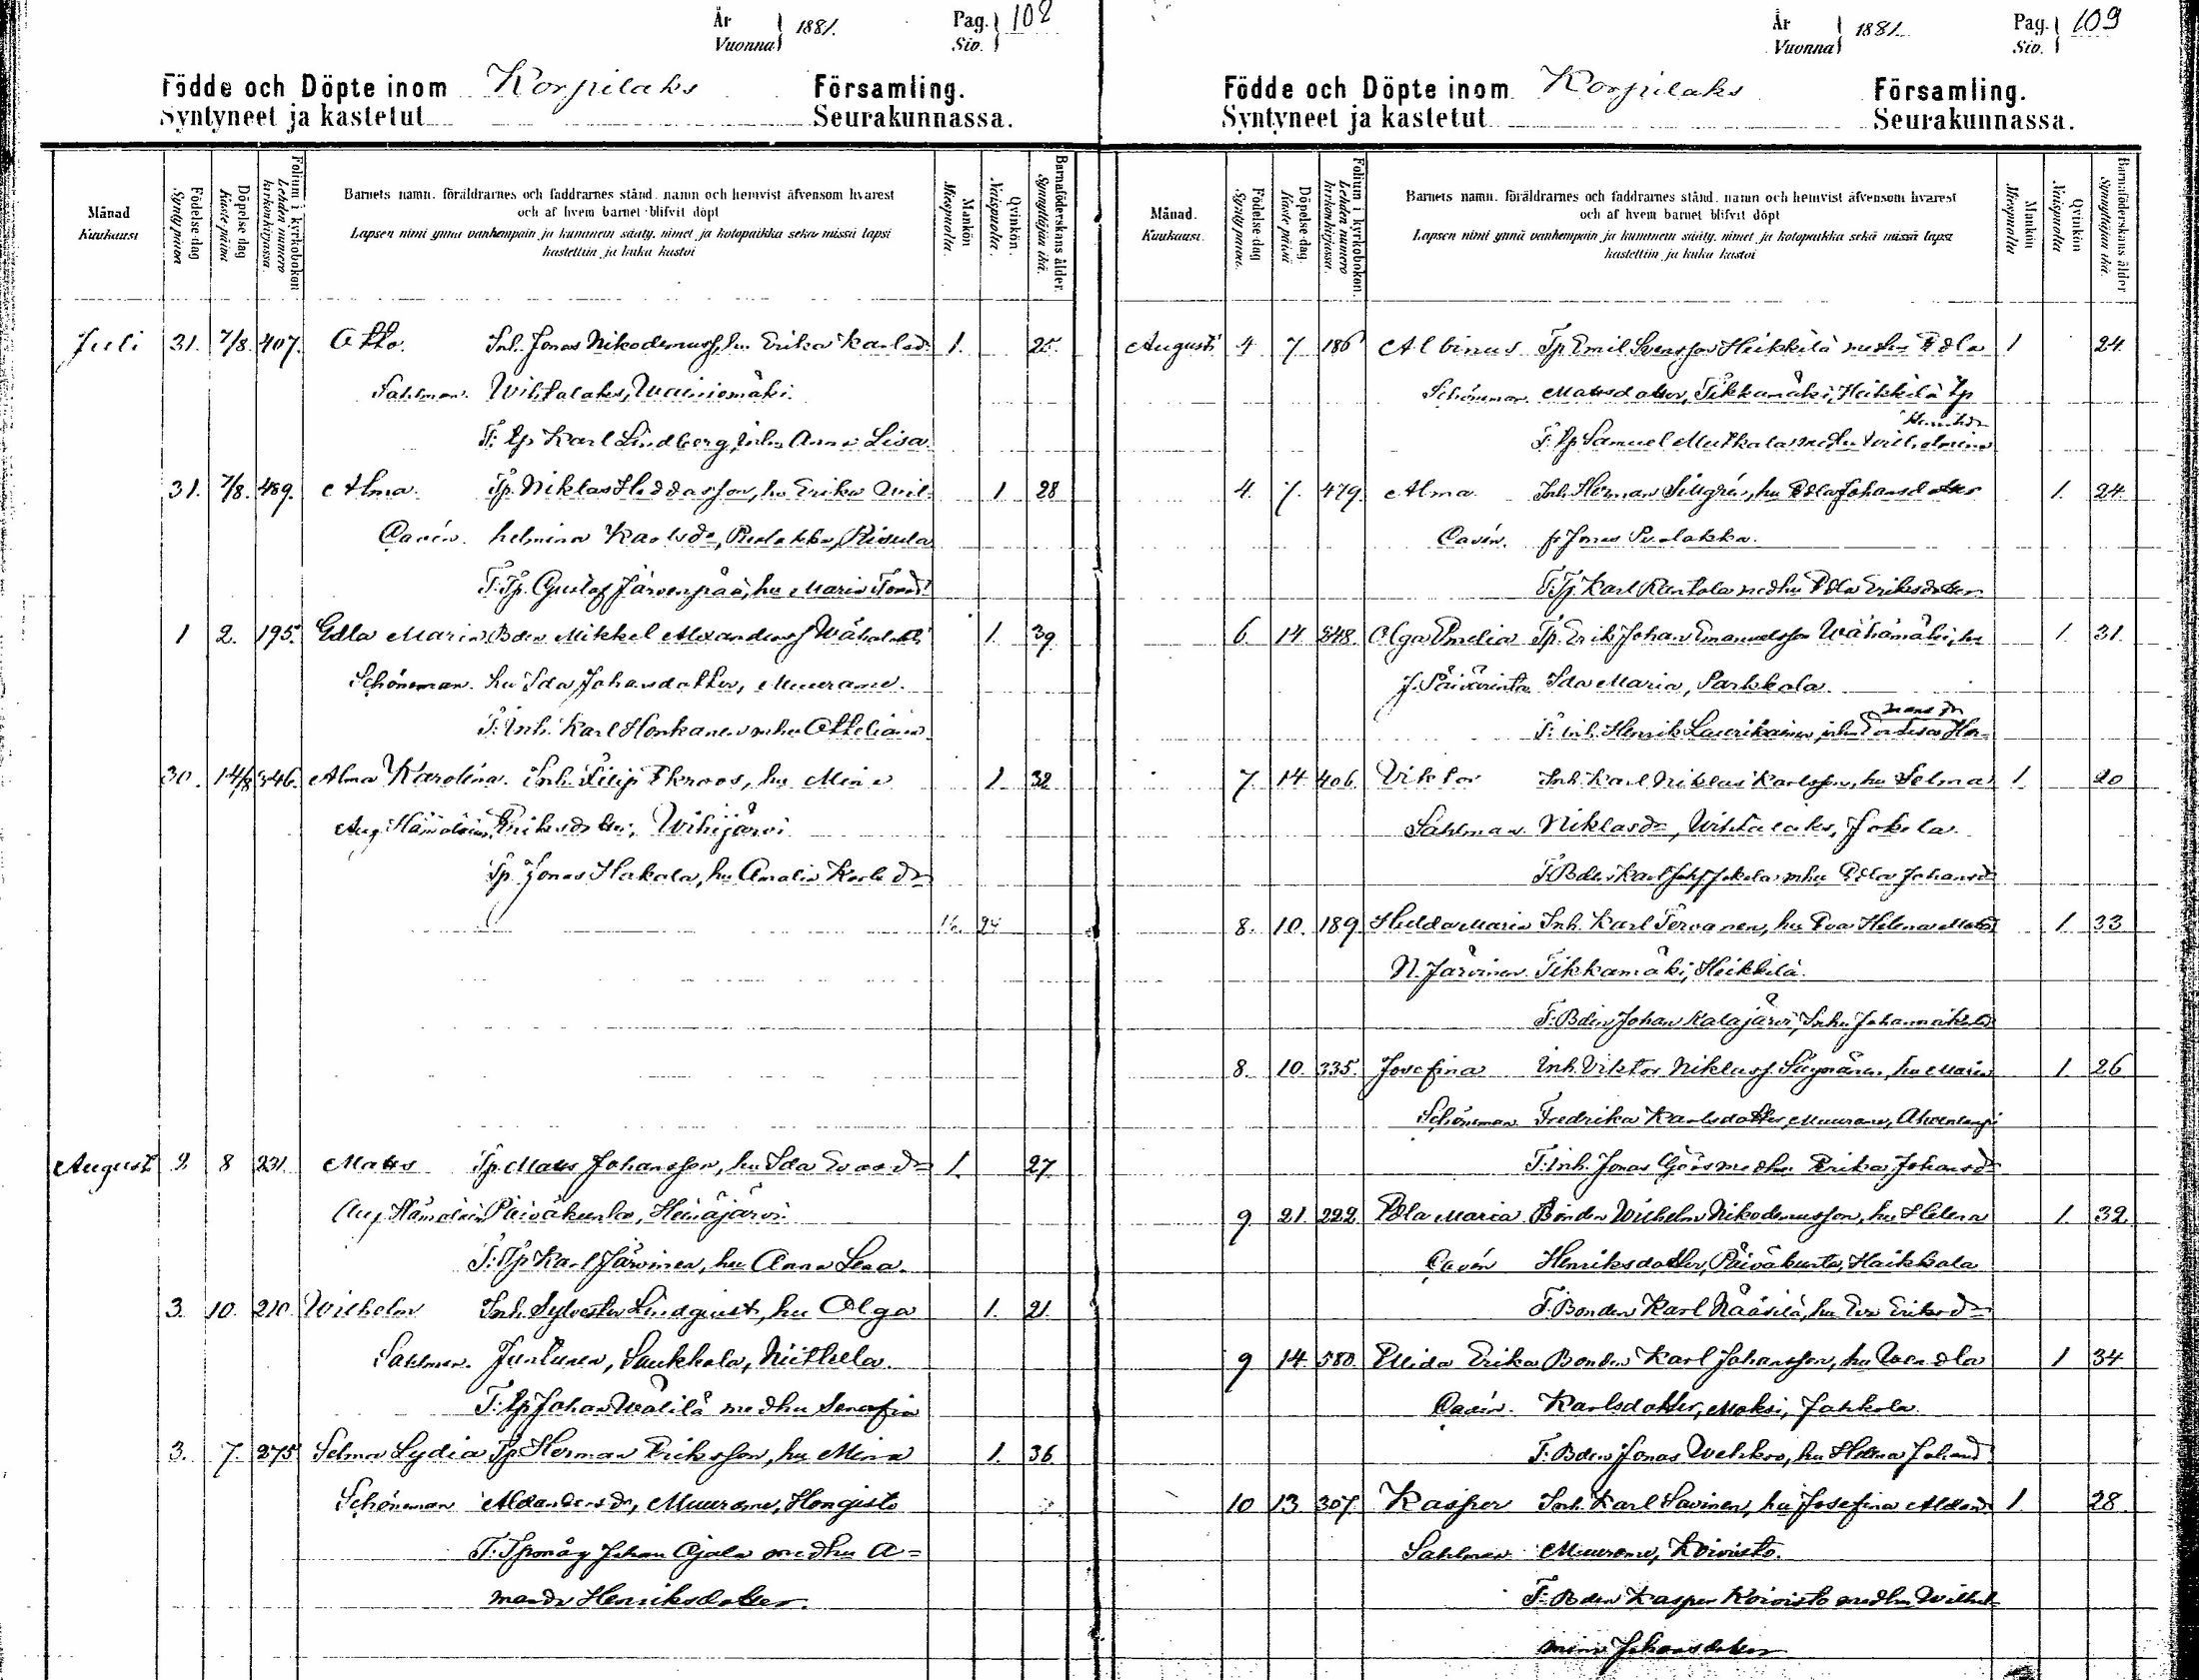 År
Vuonna
1881.
Pag.
Siv.
102
Födde och Döpte inom Korpilaks Församling.
Syntyneet ja kastetut Seurakunnassa.
Månad
Kuukausi
Födelse dag
Syntypäivä
Döpelse dag
Kastepäivä
Folium i kyrkoboken
Lehden numero kirkonkirjassa
Barnets namn, föräldrarnes och faddrarnes stånd, namn och hemvist äfvensom hvarest
och af hvem barnet blifvit döpt
Lapsen nimi ynnä vanhempain ja kummein sääty, nimet ja kotopaikka sekä missä lapsi
kastettiin ja kuka kastoi
Mankön
Miespuolia.
Qvinkön.
Naispuolia.
Barnaföderskans ålder.
Synnyttäjän ikä.
Juli 31. 7/8. 407. Otto. Inh. Jonas Nikodemuss, hu Erika Karlsd. 1. 25.
Sahlman. Wihtalaks, Wainiomäki.
F: Tp Karl Lindberg, Anna Lisa.
31. 7/8. 489. Alma. Tp. Niklas Heddasson, hu Erika Wil- 1. 28
Cavén. helmina Karlsdr, Putakka, Risula
F: Tp. Gustaf Järvenpää, hu Maria
1 2. 195. Edla Maria Bden Mikkel Alexanders 1. 39
Schöneman. hu Ida Johansdotter, Muurame.
F: Inh. Karl Honkanen mhu Ottiliana
30. 14/8 346. Alma Karolina. Inh. Filip Ekroos, hu Mina 1. 32
Aug. Hämäläinen, Eriksdotter, Wihijärvi
Tp. Jonas Hakala, hu Amalia Karlsdr
16. 24
August 2. 8 231. Mats Tp. Mats Johansson, hu Ida Evasdr 1. 27.
Aug. Hämäläinen Päiväkunta, Heinäjärvi
F: Tp Karl Järvinen, hu Anna Lena.
3. 10. 210. Wilhelm Inh. Sylvester Lindqvist, hu Olga 1. 21.
Sahlman. Juntunen, Saukkola, Niittula.
F: Tp Johan Wälilä medhu Serafia
3. 7. 275 Selma Lydia Tp. Herman Eriksson, hu Mina 1. 36
Schöneman Alexandersdr, Muurame, Hongisto
F: Johan Ojala medhu A=
manda Henriksdotter.
År
Vuonna
1881.
Pag.
Siv.
109
Födde och Döpte inom Korpilaks Församling.
Syntyneet ja kastetut Seurakunnassa.
Månad.
Kuukausi.
Födelse dag
Syntypäivä.
Döpelse dag.
Kastepäivä
Folium i kyrkoboken.
Lehden numero kirkonkirjassa.
Barnets namn, föräldrarnes och faddrarnes stånd, namn och hemvist äfvensom hvarest
och af hvem barnet blifvit döpt
Lapsen nimi ynnä vanhempain ja kummein sääty, nimet ja kotopaikka sekä missä lapsi
kastettiin ja kuka kastoi
Mankön
Miespuolia
Qvinkön
Naispuolia
Barnaföderskans ålder
Synnyttäjän ikä.
Augusti 4 7 186 Albinus Tp Emil Svensson Heikkilä Edla 1 24.
Schöneman. Matsdotter, Tikkamäki, Heikkilä tp
F: Tp Samuel Mutkala medhu Wilhelmina
4. 7. 479. Alma Inh. Herman Sillgrén, hu Edla Johansdotter 1. 24.
Cavén. fr Jonas Putakka.
F: Tp. Karl Rantala medhu Edla Eriksdotter
6. 14. 348. Olga Emelia Tp. Erik Johan Emanuelsson Wähämäki, hu 1. 31.
J. Päivärinta. Ida Maria, Parkkola.
F: Inh. Henrik Laurikainen,
7. 14. 406. Viktor Inh. Karl Niklas Karlsson, hu Selma 1. 20
Sahlman. Niklasdr, Wihtalaks, Jokela.
F: Bden Karl Jokela mhu Edla Johansd
8. 10. 189. Hulda Maria Inh. Karl Tervanen, hu Eva Helena Matsd 1. 33
N. Järvinen. Tikkamäki, Heikkilä.
F: Bden Johan Kalajärvi,
8. 10. 335. Josefina Inh. Viktor Niklass hu Maria 1 26
Schöneman Fredrika Karlsdotter, Muurame,
F: Inh. Jonas Göös medhu Erika Johansdr
9 21. 222. Edla Maria Bonden Wilhelm Nikodemusson, hu Helena 1. 32.
Cavén Henriksdotter, Päiväkunta, Haikkala
F: Bonden Karl Nääsilä, hu Eva Eriksdr
9 14. 580. Elida Erika Bonden Karl Johansson, hu Wendla 1 34
Cavén. Karlsdotter, Moksi, Jahkola.
F: Bden Jonas Wehkoo, hu Helena Johansd
10 13 307. Kasper Inh. Karl Savinen, hu Josefina Alexand. 1. 28.
Sahlman Muurame, Koivisto.
F: Bden Kasper Koivisto medhu Wilhel-
mina Johansdotter